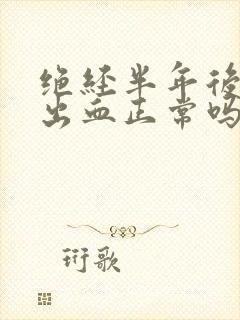 绝经半年後
出血正常吗
珩歌